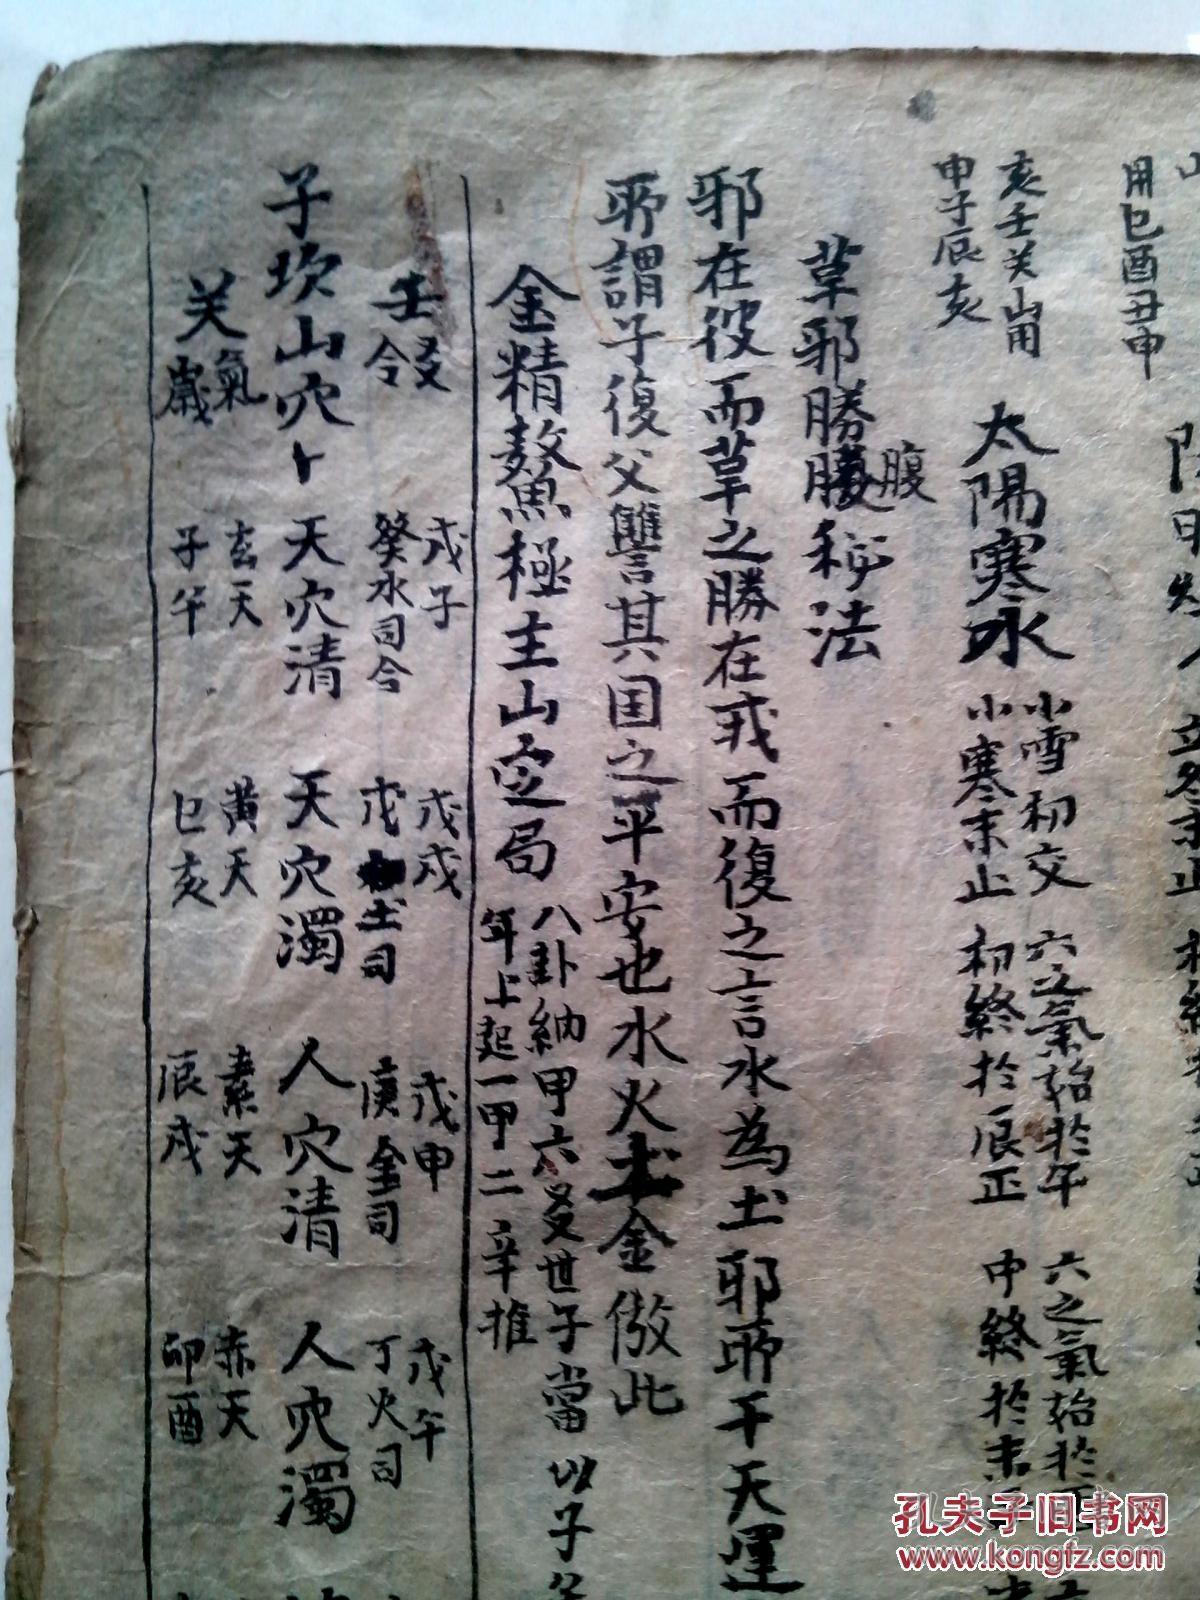 用巳酉丑申
亥壬关山用
申子辰亥
太陽寒水
小雪初交
小寒末止
六之氣始於午
初終於辰正
六之氣始於
中終於未
草邪勝腹秘法
腹
邪在彼而草之勝在我而復之言水為土邪所干天運
所謂子復父讐其国之平安也水火土金倣此
金精鰲極主山定局
八卦納甲六爻世子當以子年
年上起一甲二辛推
壬
爻
令
戊子
癸水司令
戊戌
戊土司
戊申
庚金司
戊午
丁火司
子坎山穴卜
天穴清
天穴濁
人穴清
人穴濁
关
氣
歲
玄天
子午
黄天
巳亥
素天
辰戌
赤天
卯酉
孔夫子旧书网
www.kongfz.com